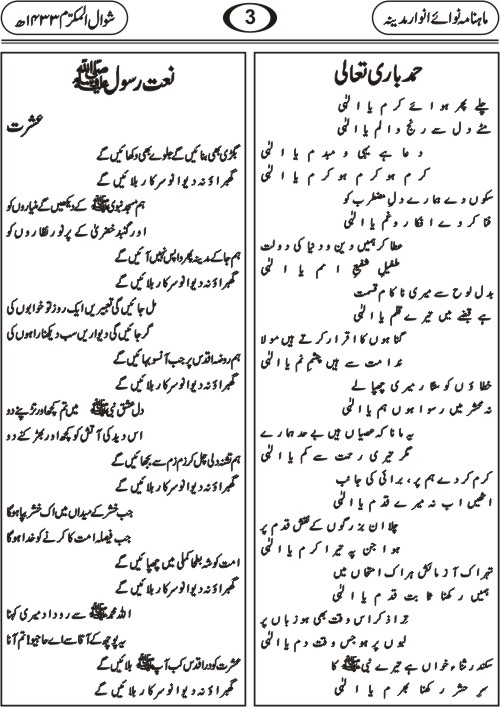 ماہنامہ نوائے انوار مدینہ
3
شوال المکرّم ۱۴۳۳ھ
حمد باری تعالیٰ
چلے پھر ہوائے کرم یا الٰہی
مٹے دل سے رنج و الم یا الٰہی
دعا ہے یہی دمبدم یا الٰہی
کرم ہو کرم ہو کرم یا الٰہی
سکوں دے ہمارے دلِ مضطرب کو
فنا کر دے افکار و غم یا الٰہی
عطا کر ہمیں دین و دنیا کی دولت
طفیلِ شفیعِ امم یا الٰہی
بدل لوح سے میری ناکام قسمت
ہے قبضے میں تیرے قلم یا الٰہی
گناہوں کا اقرار کرتے ہیں مولا
ندامت سے ہیں چشمِ نم یا الٰہی
خطاؤں کو ستار میری چھپا لے
نہ محشر میں رسوا ہوں ہم یا الٰہی
یہ مانا کہ عصیاں ہیں بے حد ہمارے
مگر تیری رحمت سے کم یا الٰہی
کرم کر دے ہم پر، برائی کی جانب
اٹھیں اب نہ میرے قدم یا الٰہی
چلا ان بزرگوں کے نقشِ قدم پر
ہوا جن پہ تیرا کرم یا الٰہی
تیری ہر اک آزمائش ہر اک امتحاں میں
ہمیں رکھنا ثابت قدم یا الٰہی
ترا ذکر اس وقت بھی ہو زباں پر
لبوں پر ہو جس وقت دم یا الٰہی
سکندر ثناء خواں ہے تیرے نبی ﷺ کا
سرِ حشر رکھنا بھرم یا الٰہی
نعت رسول ﷺ
عشرت
بگڑی بھی بنائیں گے جلوے بھی دکھائیں گے
گھبراؤ نہ دیوانو سرکار بلائیں گے
ہم مسجد نبوی ﷺ کے دیکھیں گے مناروں کو
اور گنبد خضریٰ کے پرنور نظاروں کو
ہم جا کے مدینہ پھر واپس نہیں آئیں گے
گھبراؤ نہ دیوانو سرکار بلائیں گے
مل جائیں گی تعبیریں ایک روز تو خوابوں کی
گر جائیں گی دیواریں سب دیکھنا راہوں کی
ہم روضہ اقدس پر جب آنسو بہائیں گے
گھبراؤ نہ دیوانو سرکار بلائیں گے
دل عشق نبی ﷺ میں تم کچھ اور تڑپنے دو
اس دید کی آتش کو کچھ اور بھڑکنے دو
ہم تشنہ دلی چل کر زم زم سے بجھائیں گے
گھبراؤ نہ دیوانو سرکار بلائیں گے
جب حشر کے میداں میں اک حشر بپا ہوگا
جب فیصلہ امت کا کرنے کو خدا ہوگا
امت کو شہ بطحا کملی میں چھپائیں گے
گھبراؤ نہ دیوانو سرکار بلائیں گے
اللہ محمد ﷺ سے روداد میری کہنا
یہ پوچھ کے آقا سے اے حاجیو! تم آنا
عشرت کو در اقدس کب آپ ﷺ بلائیں گے
گھبراؤ نہ دیوانو سرکار بلائیں گے